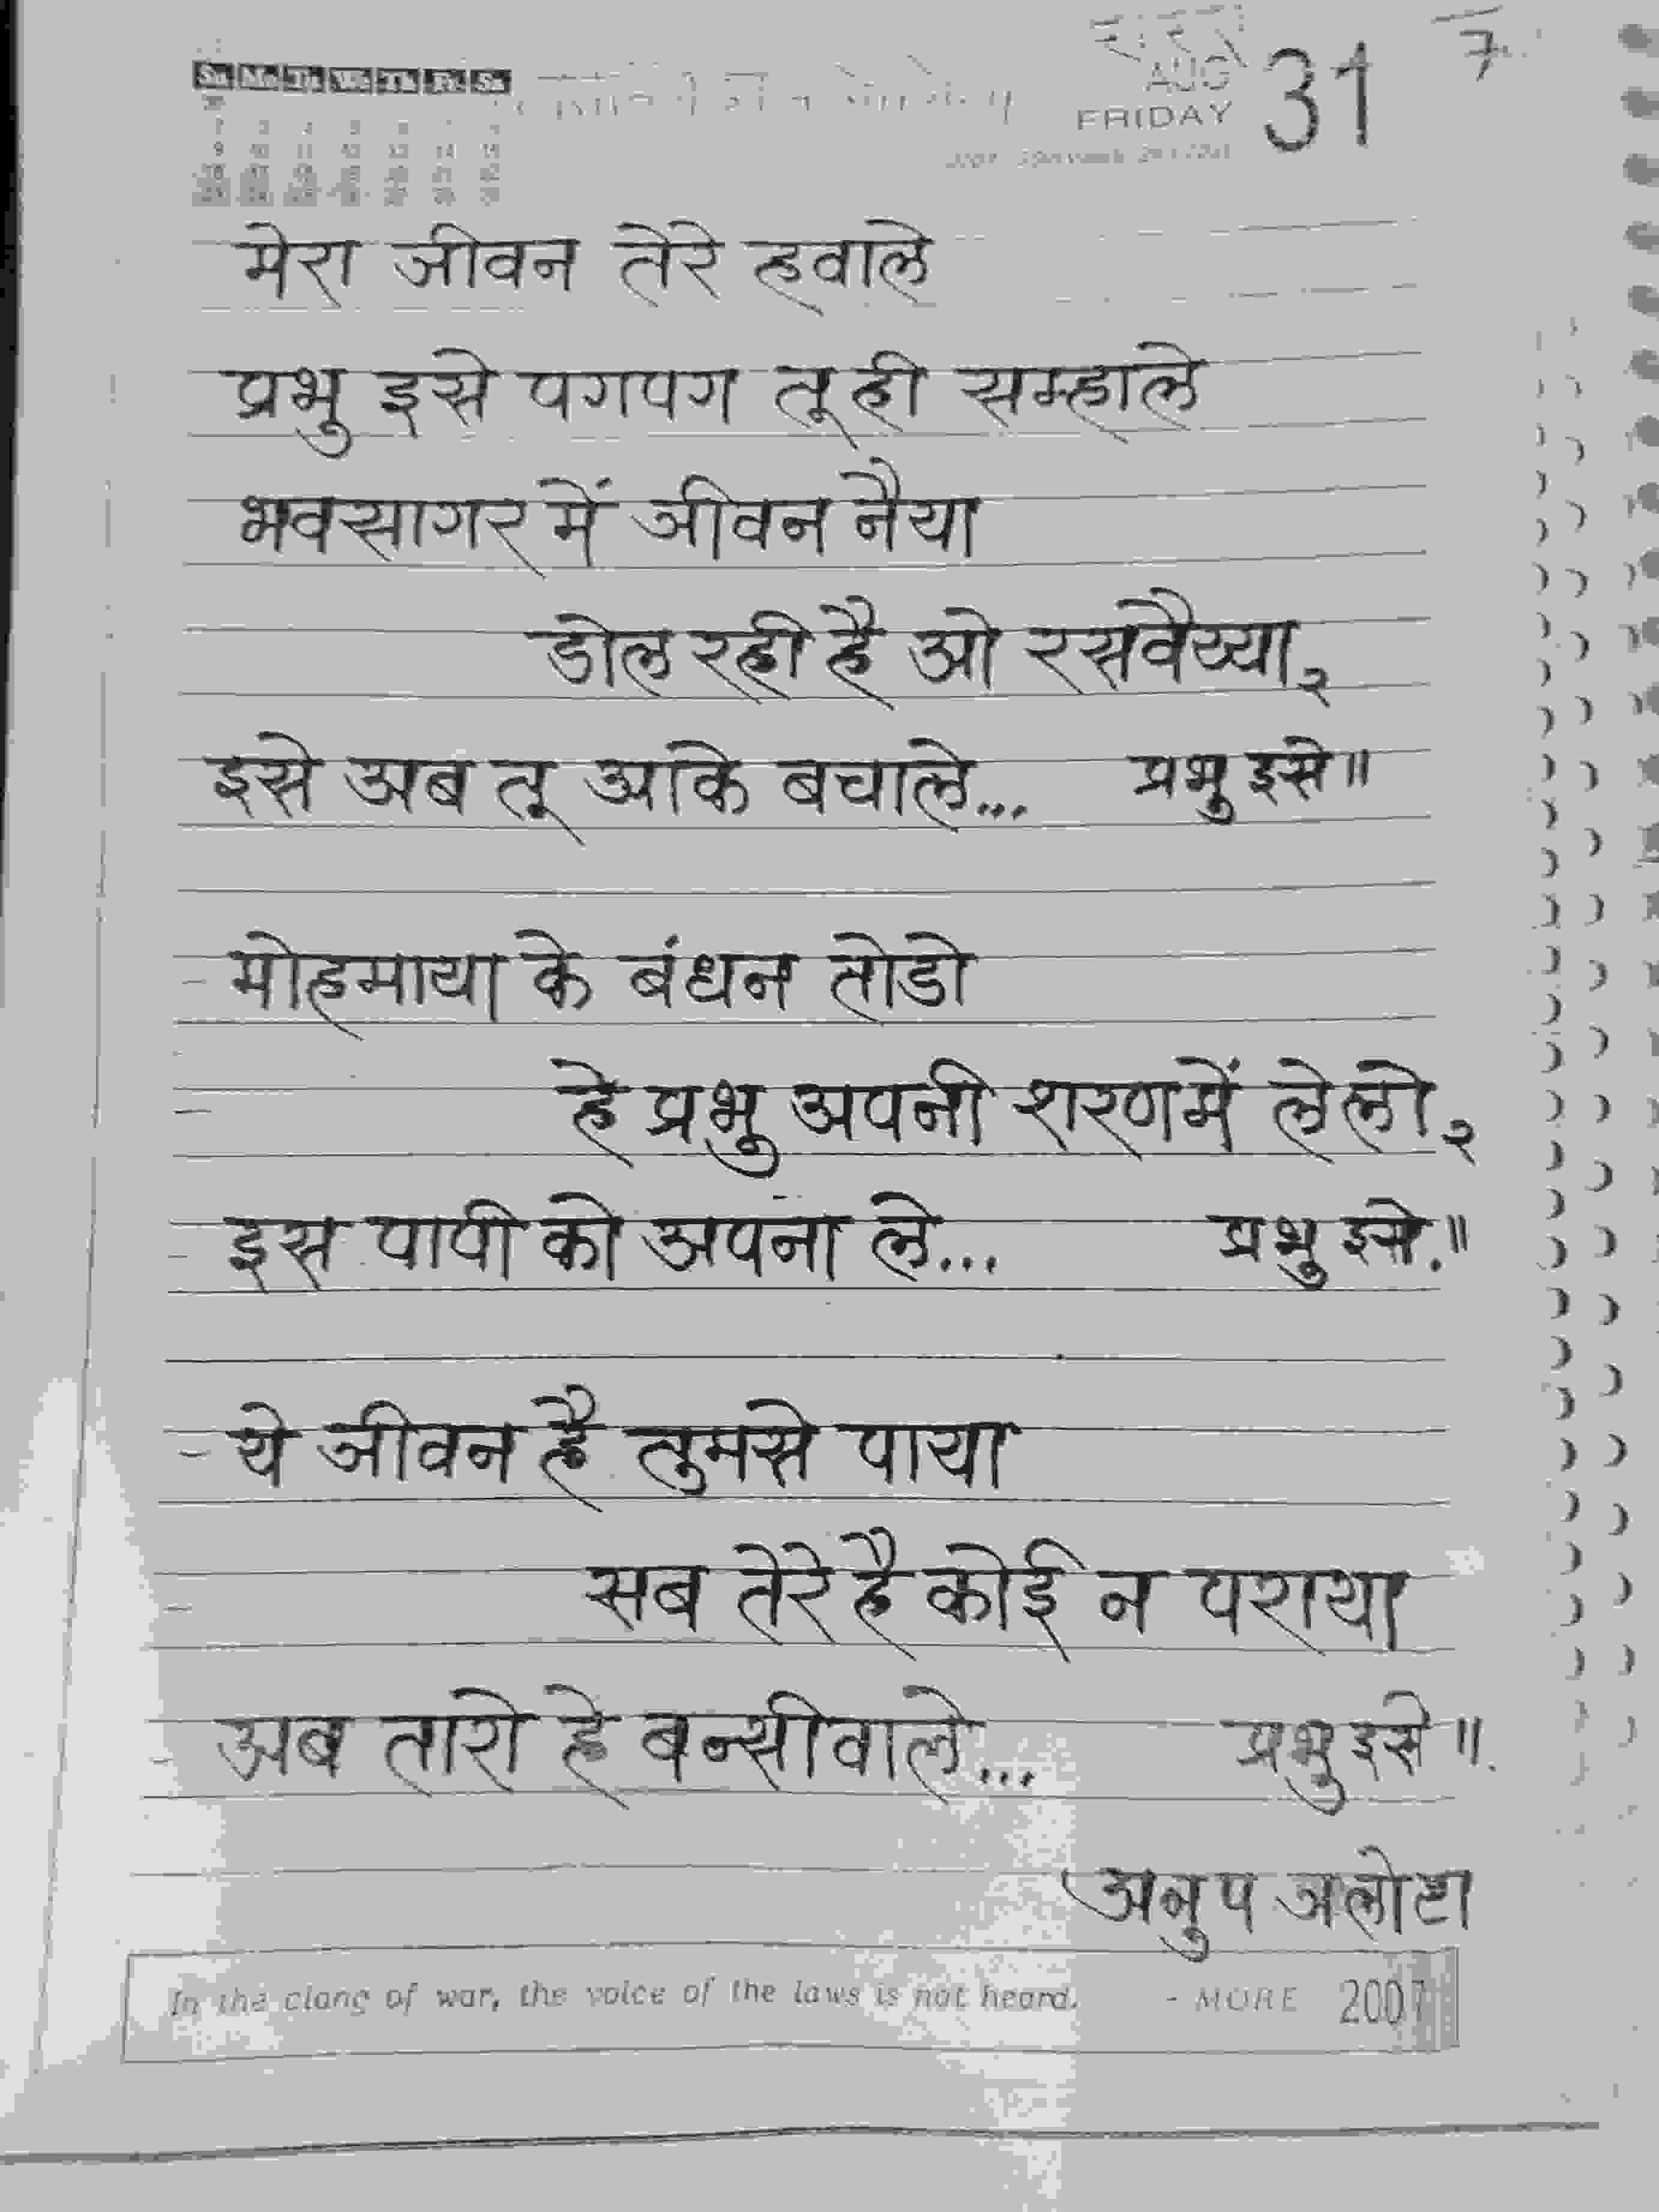 Su Mo Tu We Th Fr Sa
AUG
FRIDAY
31
7
मेरा जीवन तेरे हवाले
प्रभु इसे पगपग तू ही सम्हाले
भवसागर में जीवन नैया
डोल रही है ओ रसवैय्या २
इसे अब तू आके बचाले... प्रभु इसे॥
मोहमाया के बंधन तोडो
हे प्रभु अपनी शरणमें लेलो २
इस पापी को अपना ले... प्रभु इसे.॥
ये जीवन है तुमसे पाया
सब तेरे है कोई न पराया
अब तारो हे बन्सीवाले... प्रभु इसे॥.
अनुप जलोटा
In the clang of war, the voice of the laws is not heard. - MORE 2007